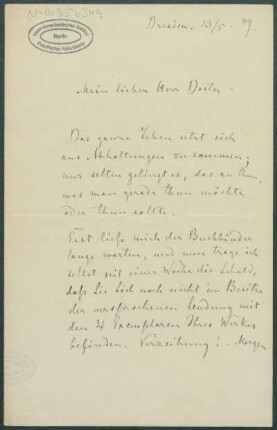 N-00356549
Iberoamerikanisches Institut
Berlin
Preußischer Kulturbesitz
Dresden, 13/5. 89.
Mein lieber Herr Doctor:
Das ganze Leben setzt sich
aus Abhaltungen zusammen;
nur selten gelingt es, das zu thun,
was man gerade thun möchte
oder thun sollte.
Erst ließ mich der Buchbinder
lange warten, und nun trage ich
selbst seit einer Woche die Schuld,
daß Sie sich noch nicht im Besitze
der versprochenen Sendung mit
den 4 Exemplaren Ihres Werkes
befinden. Verzeihung! - Morgen